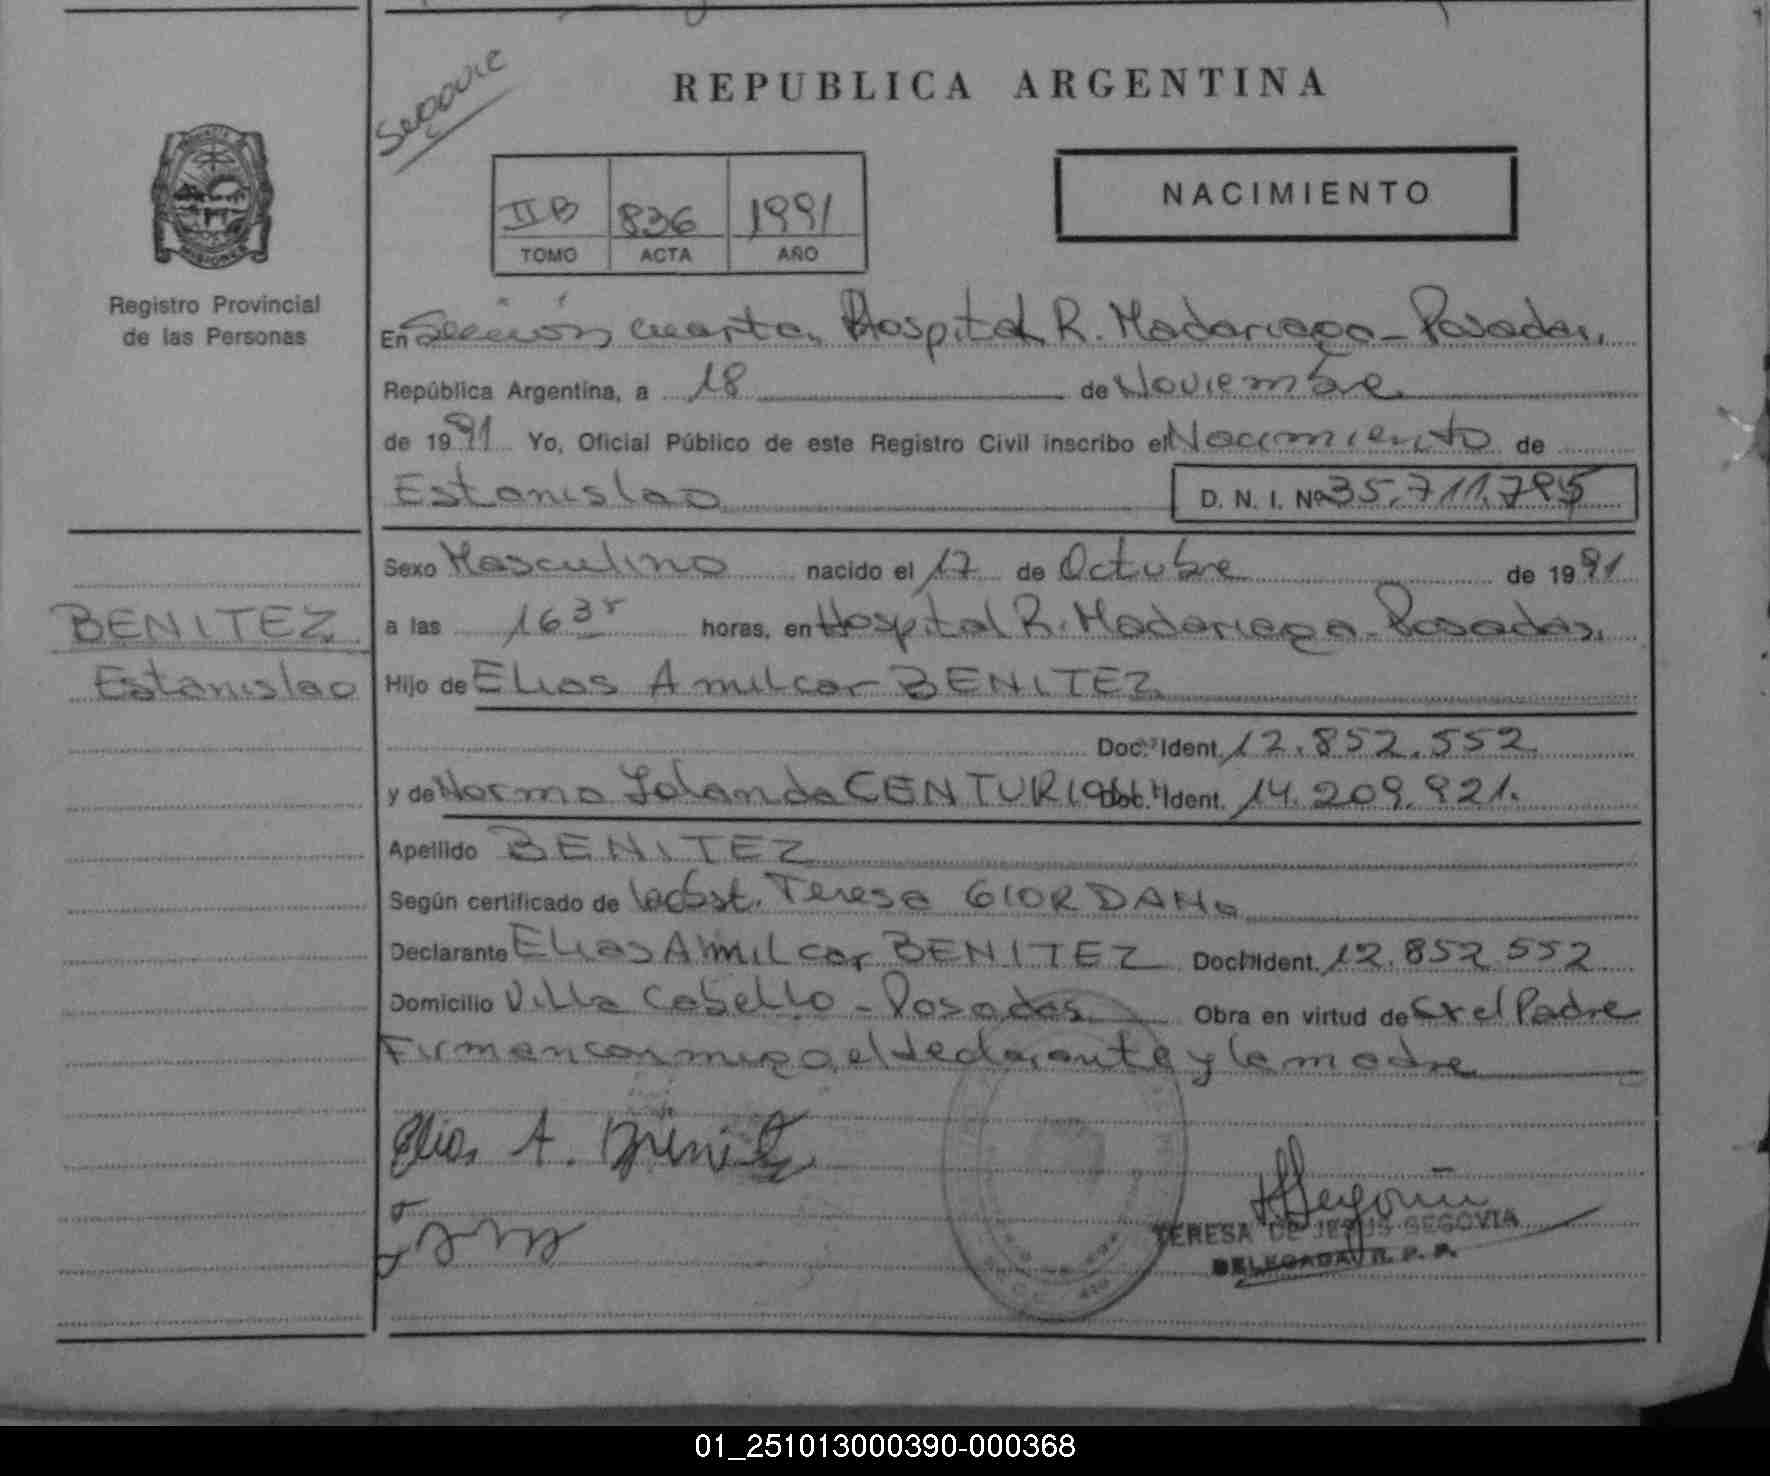 REPUBLICA ARGENTINA
NACIMIENTO
IIB 836 1991
TOMO ACTA AÑO
Registro Provincial
de las Personas
En Sección cuarta, Hospital R. Madariaga - Posadas,
República Argentina, a 18 de Noviembre
de 1991 Yo, Oficial Público de este Registro Civil inscribo el Nacimiento de
Estanislao D. N. I. Nº 35.711.795
Sexo Masculino nacido el 17 de Octubre de 1991
BENITEZ
Estanislao
a las 16 35 horas, en Hospital R. Madariaga - Posadas,
Hijo de Elias Amilcar BENITEZ
Doc. Ident. 12.852.552
y de Norma Yolanda CENTURION Doc. Ident. 14.209.921.
Apellido BENITEZ
Según certificado de la Obst. Teresa GIORDANO
Declarante Elias Amilcar BENITEZ Doc. Ident. 12.852.552
Domicilio Villa Cabello - Posadas Obra en virtud de Ser el Padre
Firman conmigo, el declarante y la madre
Elias A. Benitez
TERESA DE JESUS SEGOVIA
DELEGADA R. P. P.
01_251013000390-000368